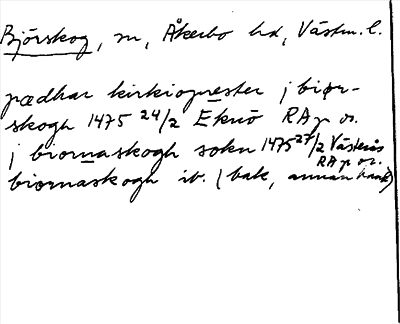 Björskog, sn, Åkerbo hd, Västm. l.
pædhar kirkioprester j biør-
skogh 1475 24/2 Eknö RAp or.
j biornaskogh sokn 1475 27/2 Västerås
RAp or.
biornaskogh ib. (bak, annan hand)